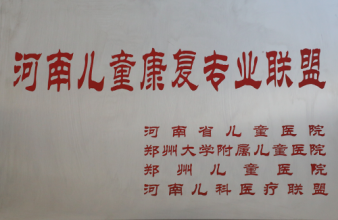 河南儿童康复专业联盟
河南省儿童医院
郑州大学附属儿童医院
郑州儿童医院
河南儿科医疗联盟